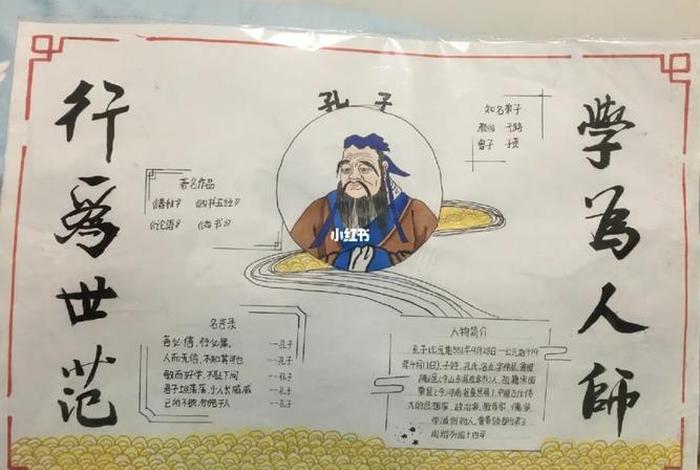 學为人師
行爲世范
孔子
知名弟子
颜回 子路
曾子 子贡
著名作品
《春秋》 《四书五经》
《论语》 《尚书》
小红书
名言录
言必信，行必果。 ——孔子
人而无信，不知其可也 ——孔子
敏而好学，不耻下问 ——孔子
君子坦荡荡，小人长戚戚 ——孔子
己所不欲，勿施于人 ——孔子
人物简介
孔子（公元前551年9月28日—公元前479
年4月11日），子姓，孔氏，名丘，字仲尼，鲁国
陬邑（今山东省曲阜市）人，祖籍宋国
栗邑（今河南省夏邑县），中国古代伟
大的思想家，政治家，教育家，儒家
学派创始人，